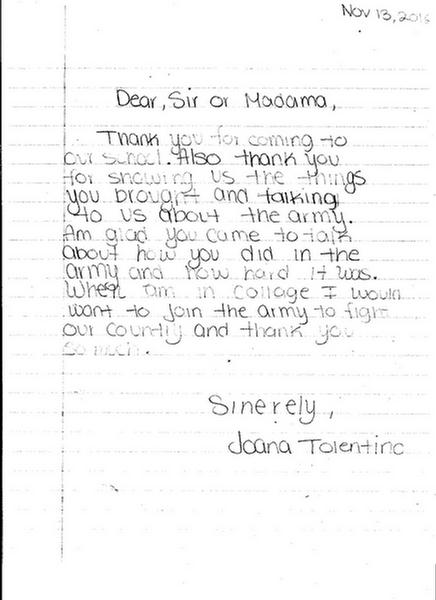 Nov 13, 2016
Dear, Sir or Madama,
Thank you for coming to
our school. Also thank you
for showing us the things
you brought and talking
to us about the army.
Am glad you came to talk
about how you did in the
army and how hard it was.
When am in Collage I would
want to join the army to fight
our country and thank you
so much.
Sinerely,
Joana Tolentino